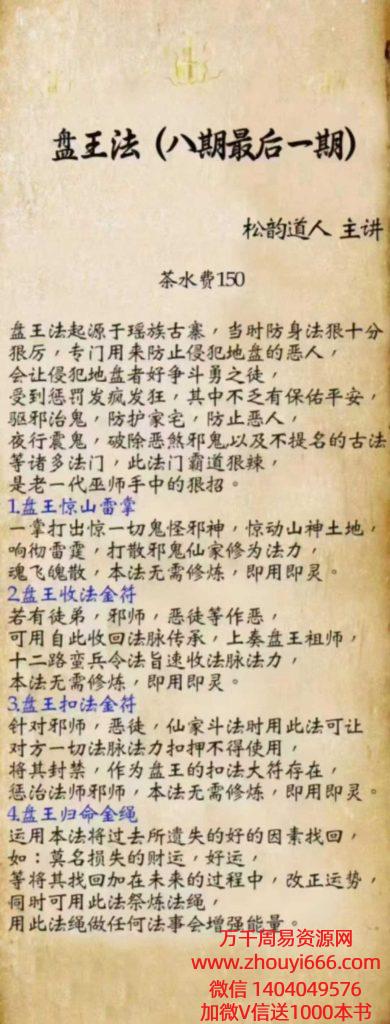 盘王法（八期最后一期）
松韵道人 主讲
茶水费150
盘王法起源于瑶族古寨，当时防身法狠十分
狠厉，专门用来防止侵犯地盘的恶人，
会让侵犯地盘者好争斗勇之徒，
受到惩罚发疯发狂，其中不乏有保佑平安，
驱邪治鬼，防护家宅，防止恶人，
夜行震鬼，破除恶煞邪鬼以及不提名的古法
等诸多法门，此法门霸道狠辣，
是老一代巫师手中的狠招。
1.盘王惊山雷掌
一掌打出惊一切鬼怪邪神，惊动山神土地，
响彻雷霆，打散邪鬼仙家修为法力，
魂飞魄散，本法无需修炼，即用即灵。
2.盘王收法金符
若有徒弟，邪师，恶徒等作恶，
可用自此收回法脉传承，上奏盘王祖师，
十二路蛮兵令法旨速收法脉法力，
本法无需修炼，即用即灵。
3.盘王扣法金符
针对邪师，恶徒，仙家斗法时用此法可让
对方一切法脉法力扣押不得使用，
将其封禁，作为盘王的扣法大符存在，
惩治法师邪师，本法无需修炼，即用即灵。
4.盘王归命金绳
运用本法将过去所遗失的好的因素找回，
如：莫名损失的财运，好运，
等将其找回加在未来的过程中，改正运势，
同时可用此法祭炼法绳，
用此法绳做任何法事会增强能量。
万千周易资源网
www.zhouyi666.com
微信 1404049576
加微V信送1000本书